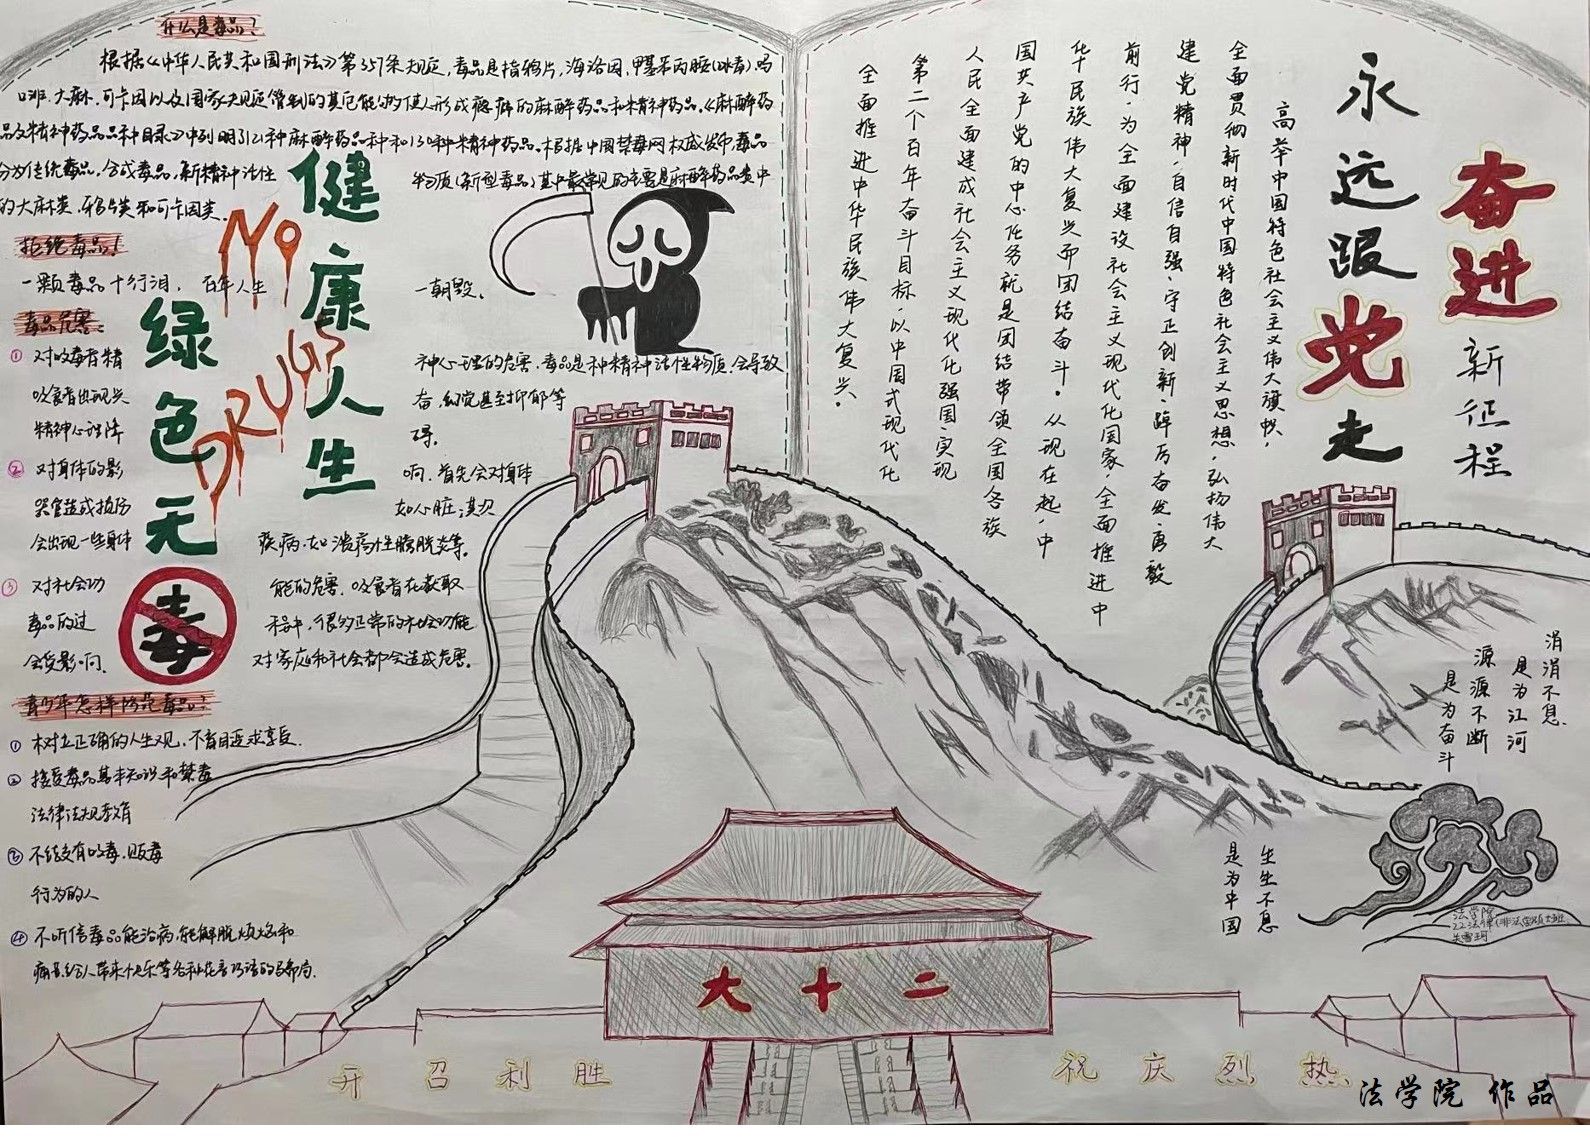 什么是毒品?
根据《中华人民共和国刑法》第357条规定,毒品是指鸦片,海洛因,甲基苯丙胺(冰毒)吗
啡.大麻.可卡因以及国家规定管制的其它能够使人形成瘾癖的麻醉药品和精神药品。《麻醉药
品及精神药品品种目录》中列明了121种麻醉药品种和130种精神药品。根据中国禁毒网权威发布毒品
分为传统毒品,合成毒品,新精神活性
物质(新型毒品)其中最常见的主要是麻醉药品类中
的大麻类,鸦片类和可卡因类.
拒绝毒品!
一颗毒品十行泪, 百年人生
一朝毁。
毒品危害:
① 对吸毒者精
神心理的危害.毒品是种精神活性物质,会导致
吸食者出现兴
奋,幻觉甚至抑郁等
精神心理障
碍。
② 对身体的影
响.首先会对身体
器官造成损伤
如心脏
会出现一些身体
疾病.如溃疡性膀胱炎等。
③ 对社会功
能的危害.吸食者在获取
毒品的过
程中,很多正常的社会功能
会受影响.
对家庭和社会都会造成危害。
青少年怎样防范毒品?
① 树立正确的人生观,不盲目追求享受.
② 接受毒品基本知识和禁毒
法律法规教育
③ 不结交有吸毒.贩毒
行为的人
④ 不听信毒品能治病,能解脱烦恼和
痛苦,给人带来快乐等各种花言巧语的
健康人生
绿色无
毒
NO
DRUGS
奋进新征程
永远跟党走
高举中国特色社会主义伟大旗帜.
全面贯彻新时代中国特色社会主义思想,弘扬伟大
建党精神,自信自强、守正创新,踔厉奋发、勇毅
前行,为全面建设社会主义现代化国家,全面推进中
华民族伟大复兴而团结奋斗。从现在起,中
国共产党的中心任务就是团结带领全国各族
人民全面建成社会主义现代化强国、实现
第二个百年奋斗目标,以中国式现代化
全面推进中华民族伟大复兴。
涓涓不息.
是为江河
源源不断
是为奋斗
生生不息
是为中国
法学院
22法律(非法学)硕士班
大十二
开召利胜
祝庆烈热
法学院 作品